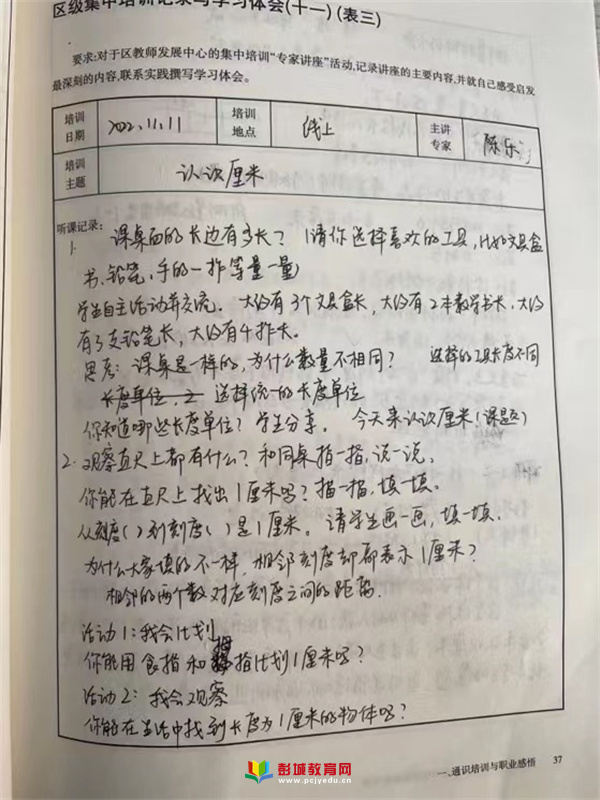 区级集中培训记录与学习体会(十一)(表三)
要求:对于区教师发展中心的集中培训“专家讲座”活动,记录讲座的主要内容,并就自己感受启发
最深刻的内容,联系实践撰写学习体会。
培训日期 202.11.11 培训地点 线上 主讲专家 陈乐
培训主题 认识厘米
听课记录:
1. 课桌面的长边有多长? 请你选择喜欢的工具,比如文具盒
书、铅笔、手的一拃等量一量
学生自主活动并交流。大约有3个文具盒长,大约有2本数学书长、大约
有3支铅笔长,大约有4拃长。
思考:课桌是一样的,为什么数量不相同? 选择的工具长度不同
长度单位, 选择统一的长度单位
你知道哪些长度单位?学生分享。 今天来认识厘米(课题)
2. 观察直尺上都有什么?和同桌指一指,说一说、
你能在直尺上找出1厘米吗?描一描,填一填。
从刻度( )到刻度( )是1厘米。请学生画一画,填一填.
为什么大家填的不一样,相邻刻度却都表示1厘米?
相邻的两个数对应刻度之间的距离.
活动1:我会比划
你能用食指和拇指比划1厘米吗?
活动2:我会观察
你能在生活中找到长度为1厘米的物体吗?
一、通识培训与职业感悟 37
彭城教育网
www.pcjyedu.cn